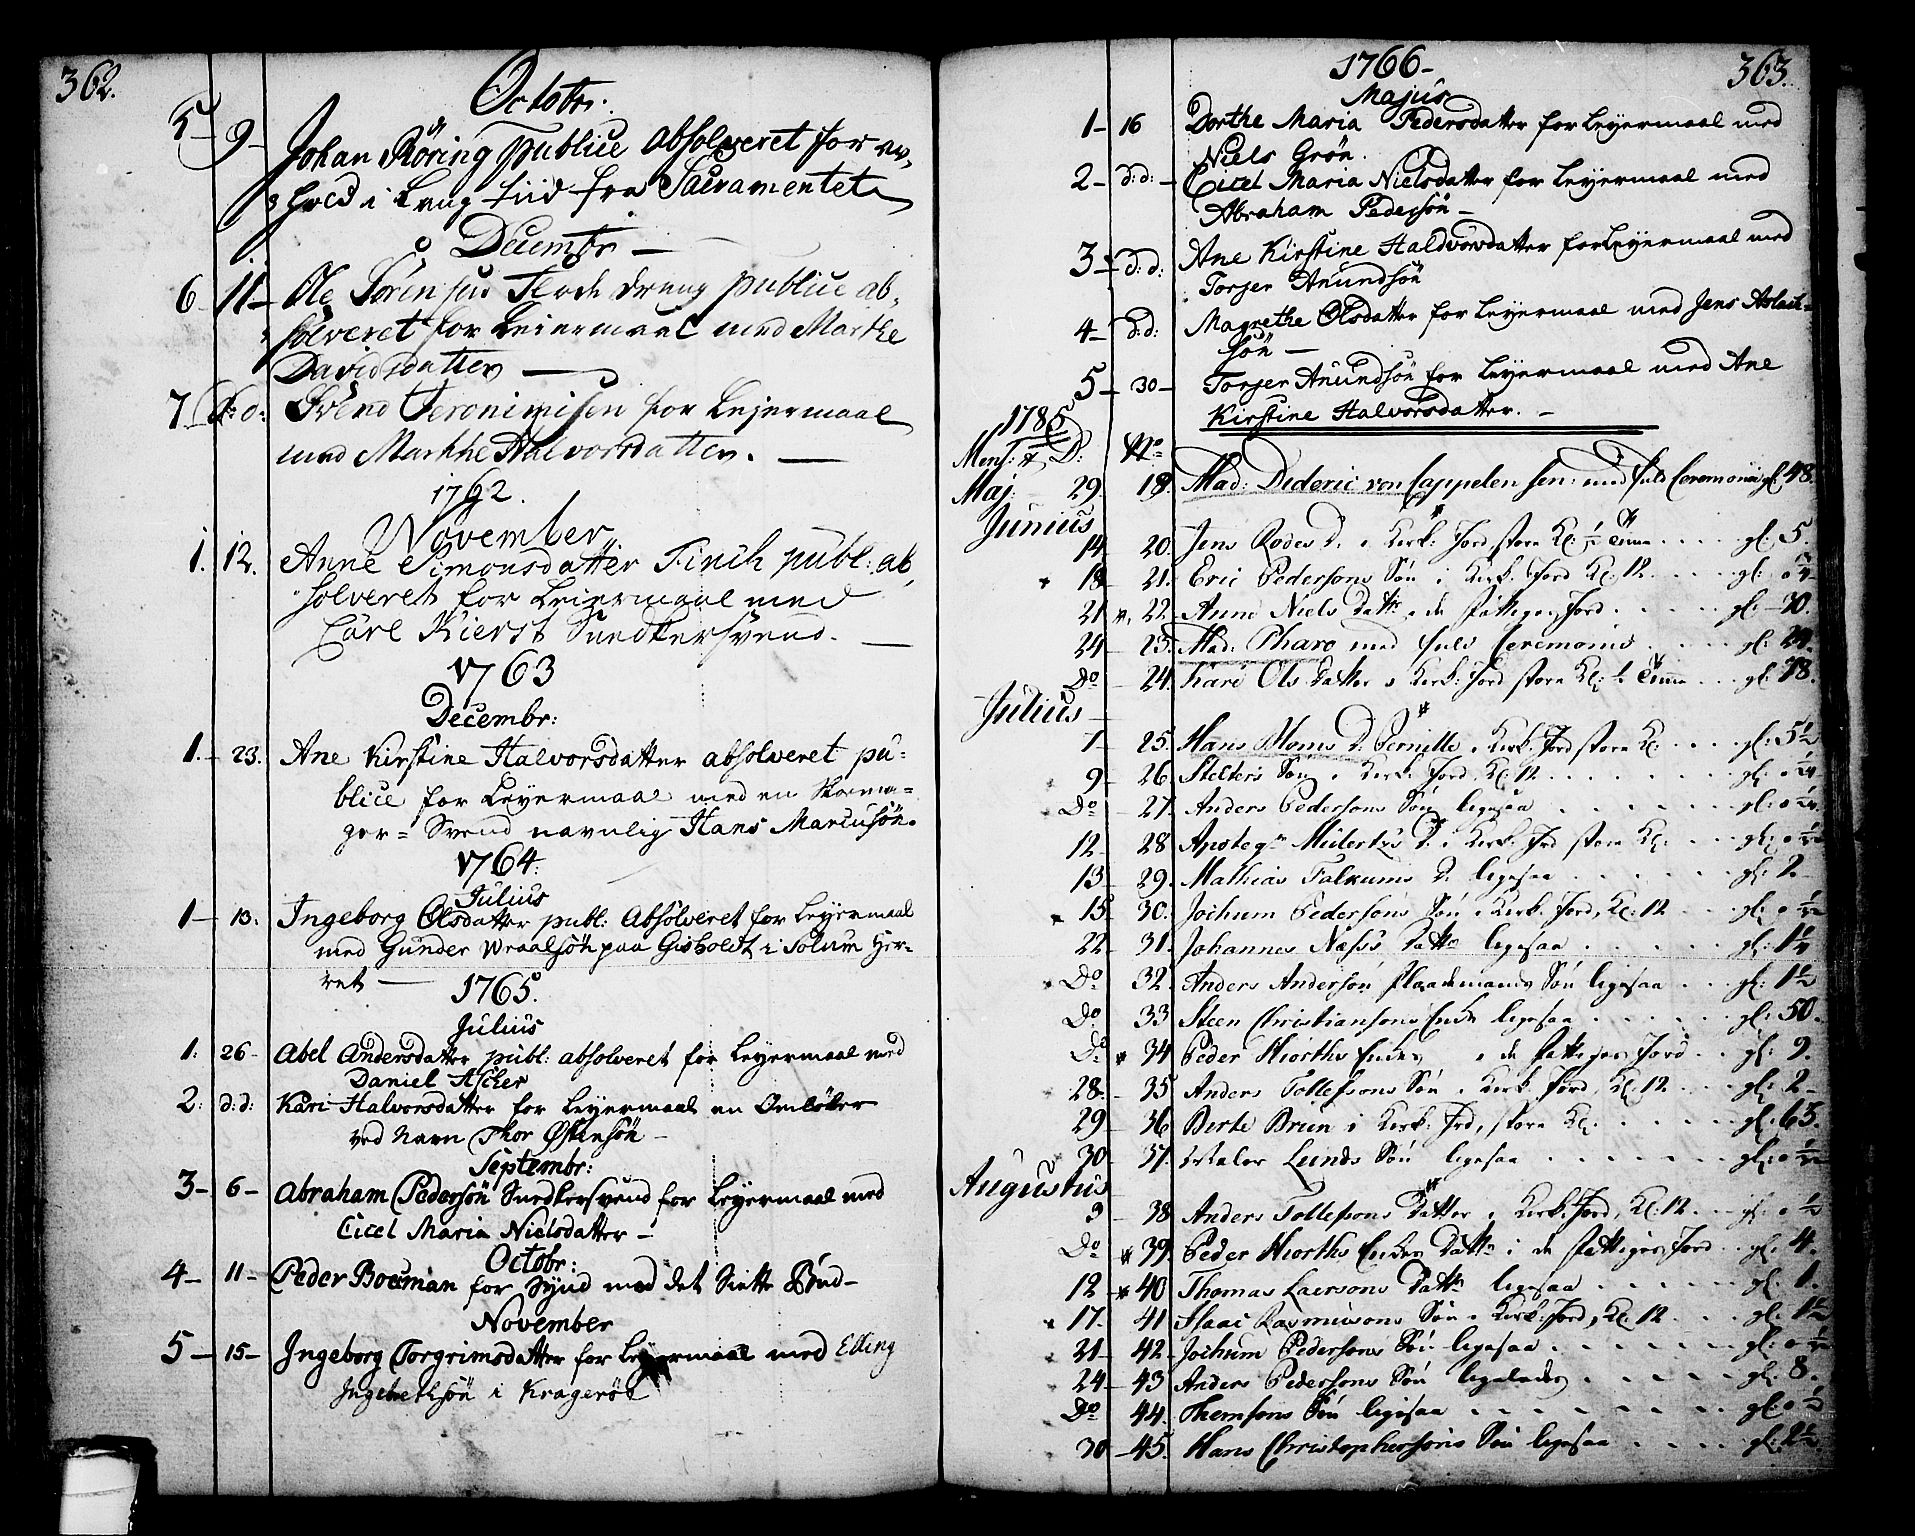 362.
Octobr.
5 – 9 – Johan Röring publice absolveret for
hold i Lang tiid fra Sacramentet
Decembr –
6 11 – Ole Sörensen Flode dreng publice ab-
solveret for Leiermaal med Marthe
Davidsdatter –
7 d: d: Svend Jeronimisen for Lejermaal
med Marthe Halvorsdatter. –
1762.
November
1. 12. Anne Simonsdatter Finck publ: ab
solveret for Leiermaal med
Carl Kierst Snedkersvend. –
1763
Decembr:
1. – 23. Ane Kirstine Halvorsdatter absolveret pu-
blice for Leyermaal med en Skoema-
ger = Svend navnlig Hans Marcusön.
1764.
Julius
1 – 13. Ingeborg Olsdatter publ: Absolveret for Leyermaal
med Gunder Wraalsön paa Gisholdt i Solum Her-
ret –
1765.
Julius
1: 26 – Abel Andersdatter publ: absolveret for Leyermaal med
Daniel Ascher
2: d: d: Kari Halvorsdatter for Leyermaal en Omlöber
ved Navn Thor Østensön –
Septembr:
3 – 6 – Abraham Pedersön Snedkersvend for Leyermaal med
Cicel Maria Nielsdatter –
Octobr:
4 – 11 – Peder Boesman for Synd mod det Siette Bud –
November
5 – 15 – Ingeborg Torgrimsdatter for Leyermaal med Elling
Ingebretsön i Krageröe
1766 –
363.
Majus
1 – 16 Dorthe Maria Pedersdatter for Leyermaal med
Niels Grön.
2 – d: d: – Cicel Maria Nielsdatter for Leyermaal med
Abraham Pedersön –
3 – d: d: Ane Kirstine Haldvorsdatter for Leyermaal med
Torger Anundsön
4 – d: d: Magrethe Olsdatter for Leyermaal med Jens Aslach-
sön –
5 – 30 – Torger Anundsön for Leyermaal med Ane
Kirstine Halvorsdatter. –
1785
Mens: & D: No
Maj: 29. 18. Mad: Dideric von Cappelen sen: med fuld Ceremonie gl: 48.
Junius
14 20. Jens Rodes D. i Kirk: Jord store Kl: 1/2 Time .... gl: 5.
18 21. Eric Pedersöns Sön i Kirk: Jord Kl. 12 ..... gl: 0 1/4
21 22. Anne Niels Datt: i de fattiges Jord ..... gl: – 30.
24 – 23. Mad: Pharo med fuld Ceremonie .... gl: 24.
Do 24. Kari Ols Datter i Kirk: Jord store Kl: 1/2 Time ... gl: 78.
Julius –
7 – 25. Hans Moms D. Pernille i Kirk: Jord store Kl: .... gl: 5 1/2
9 – 26. Stelters Sön i Kirk: Jord, Kl. 12 ...... gl: 0 1/4
Do – 27. Anders Pedersöns Sön ligesaa ...... gl: 0 1/4
12 – 28 Apoteqr Mülertz's D. i Kirk: Jord store Kl: ... gl: 0 1/2
13 – 29. Mathias Falkums D. ligesaa ...... gl: 2. –
15 30. Jochum Pedersöns Sön i Kirk: Jord, Kl: 12 ... gl: 0 1/2
22 – 31. Johannes Næss's Dattr ligesaa ..... gl: 1 1/4
Do 32. Anders Andersön Flaademands Sön ligesaa ... gl: 1 1/2
Do 33 Steen Christiansöns Enke ligesaa ..... gl: 50.
Do 34 Peder Hiorths Enke, i de fattiges Jord .. gl: 9.
28. – 35 Anders Tollefsöns Sön i Kirk: Jord, Kl. 12 ... gl: 2 –
29 – 36 Berte Brun i Kirk: Jord, store Kl: ..... gl: 65.
30 – 37. Lunds Sön ligesaa ...... gl: 0 1/2
Augustus
3 – 38. Anders Tollefsöns Datter i Kirk: Jord, Kl: 12 .. gl: 0 1/2
Do 39. Peder Hiorths Enkes Dattr i de fattiges Jord .. gl: 4.
12 – 40 Thomas Laersöns Dattr ligesaa ..... gl: 1.
17. 41 Isaac Rasmusöns Sön i Kirk: Jord, Kl. 12 ... gl: 1 1/2
21 – 42 – Jochum Pedersöns Sön ligesaa ...... gl: 0 1/2
24 – 43 Anders Pedersöns Sön ligeledes ..... gl: 8.
Do 44. Themsöns Sön ligesaa ....... gl: 0 1/2
30 – 45. Hans Christophersöns Sön ligesaa .... gl: 2 1/2